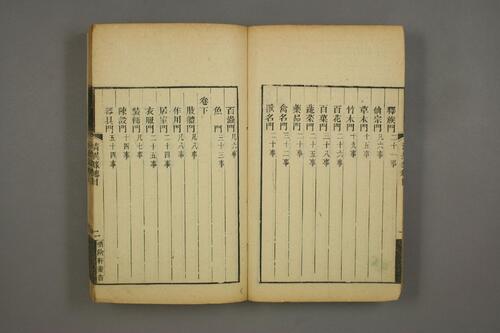 釋族門二十一事
仙宗門凡六事
草木門十五事
竹木門十九事
百花門二十六事
百菓門二十八事
蔬菜門二十五事
藥品門二十事
禽名門三十二事
獸名門二十事
百蟲門凡六事
魚門二十三事
卷下
肢體門凡八事
作用門凡八事
居室門二十四事
衣服門二十五事
裝飾門凡七事
陳設門十四事
器具門五十四事